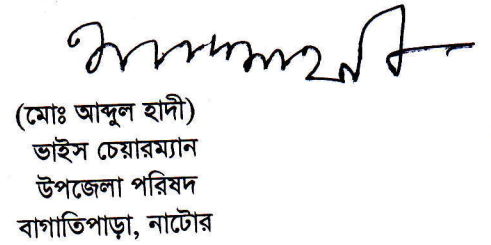 (মোঃ আব্দুল হাদী)
ভাইস চেয়ারম্যান
উপজেলা পরিষদ
বাগাতিপাড়া, নাটোর